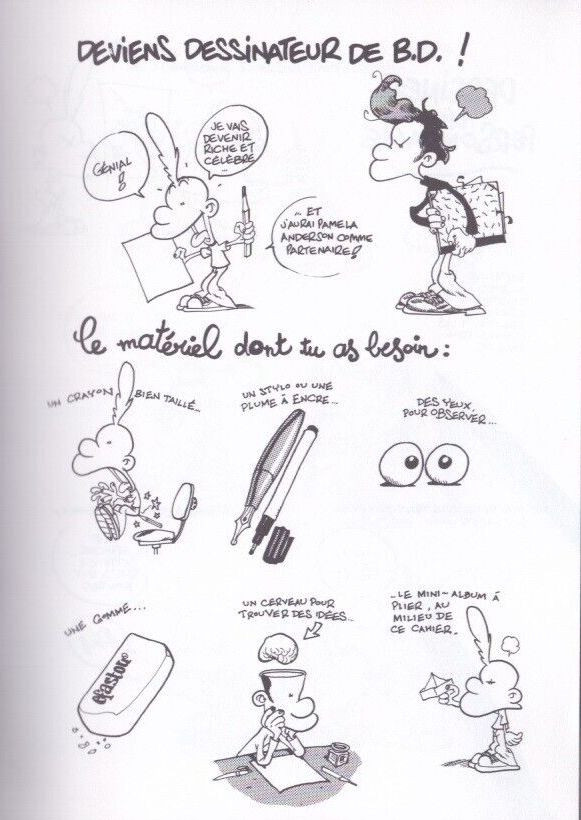 DEVIENS DESSINATEUR DE B.D. !
GÉNIAL
!
JE VAIS
DEVENIR
RICHE ET
CÉLÈBRE
...
... ET
J'AURAI PAMELA
ANDERSON COMME
PARTENAIRE !
le matériel dont tu as besoin :
UN CRAYON BIEN TAILLÉ...
UN STYLO OU UNE
PLUME À ENCRE...
DES YEUX
POUR OBSERVER...
UNE GOMME...
UN CERVEAU POUR
TROUVER DES IDÉES...
...LE MINI-ALBUM À
PLIER, AU
MILIEU DE
CE CAHIER.